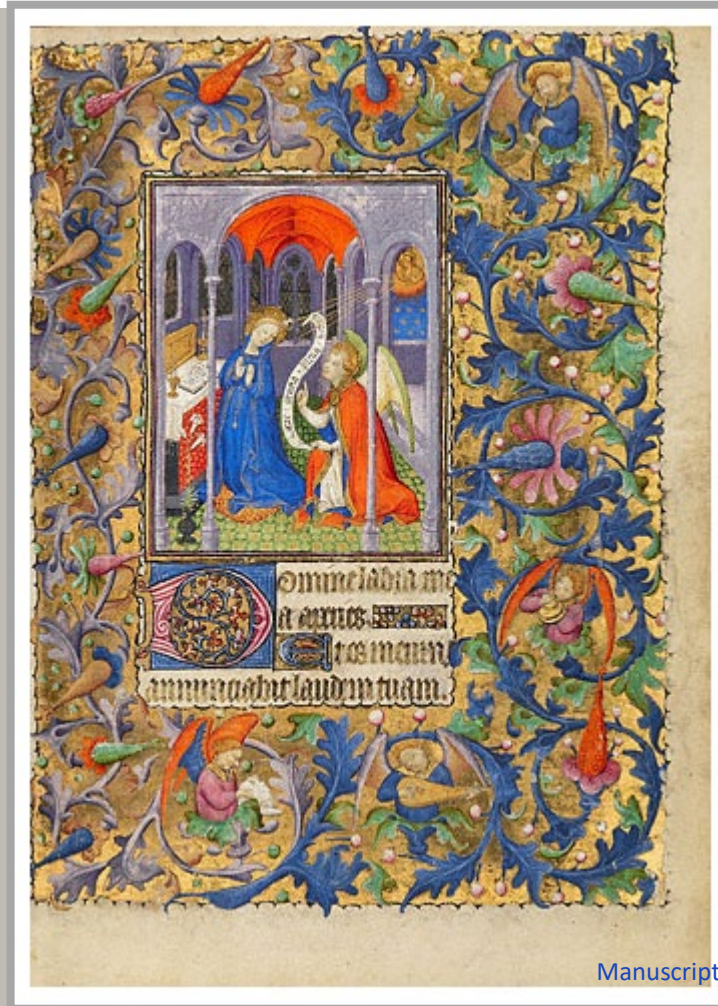 Domine labia me
a aperies.
Et os meum
annunciabit laudem tuam.
Manuscript